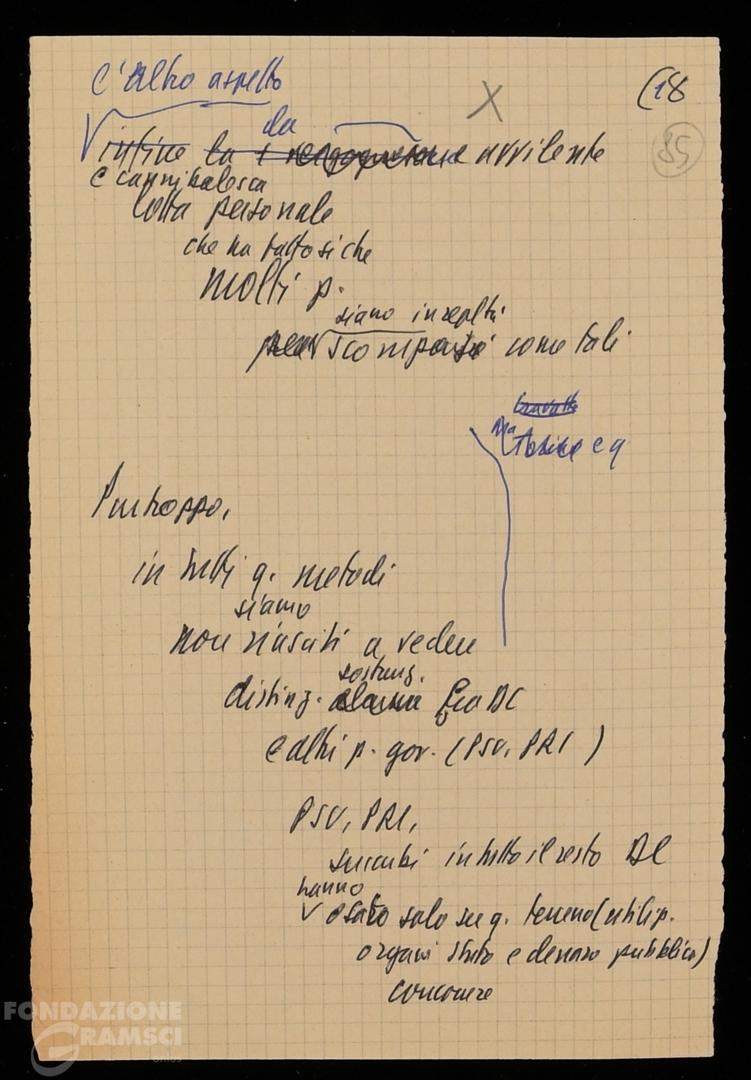 (18
85
X
c'altro aspetto
infine la da avvilente
e cannibalesca
lotta personale
che ha fatto sì che
molti p.
siano
scomparsi come tali
Ma
Purtroppo,
in tutti q. metodi
siamo
non riusciti a vedere
sostanz.
distinz. alcuna fra DC
e altri p. gov. (PSU, PRI)
PSU, PRI,
succubi in tutto il resto DC
hanno
osato solo su q. terreno (utilizz.
organi stato e denaro pubblico)
concorrere
FONDAZIONE
GRAMSCI
onlus